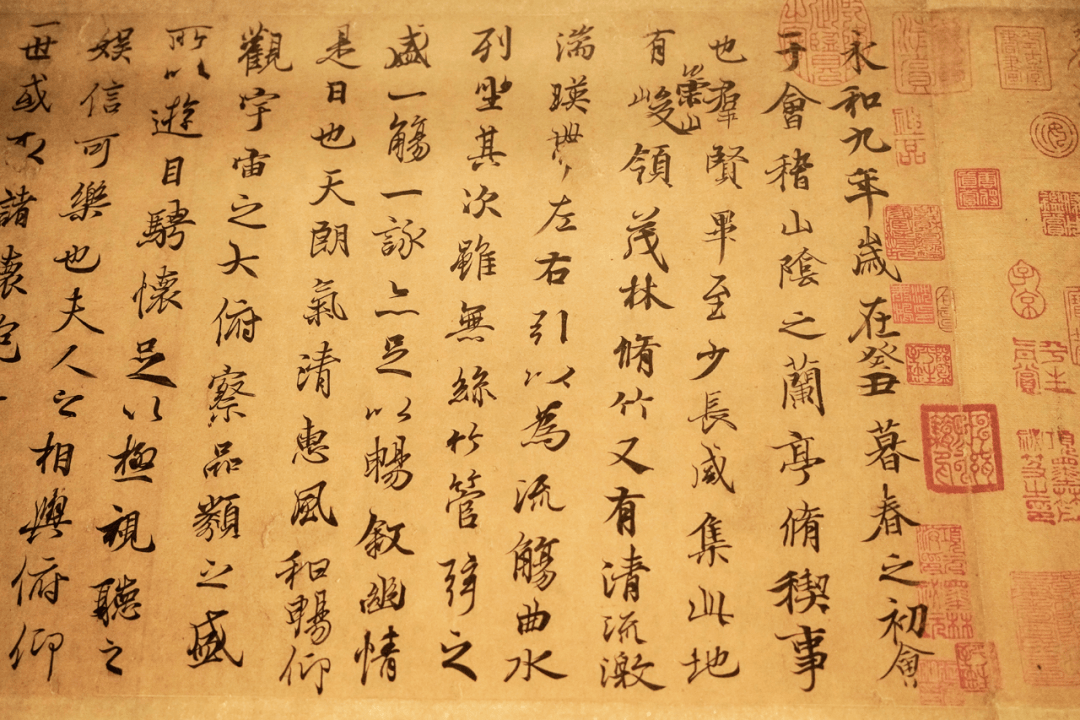 永和九年歲在癸丑暮春之初會
于會稽山陰之蘭亭脩稧事
也羣賢畢至少長咸集此地
有崇山峻領茂林脩竹又有清流激
湍暎帶左右引以為流觴曲水
列坐其次雖無絲竹管弦之
盛一觴一詠亦足以暢敘幽情
是日也天朗氣清惠風和暢仰
觀宇宙之大俯察品類之盛
所以遊目騁懷足以極視聽之
娛信可樂也夫人之相與俯仰
一世或取諸懷抱
子京